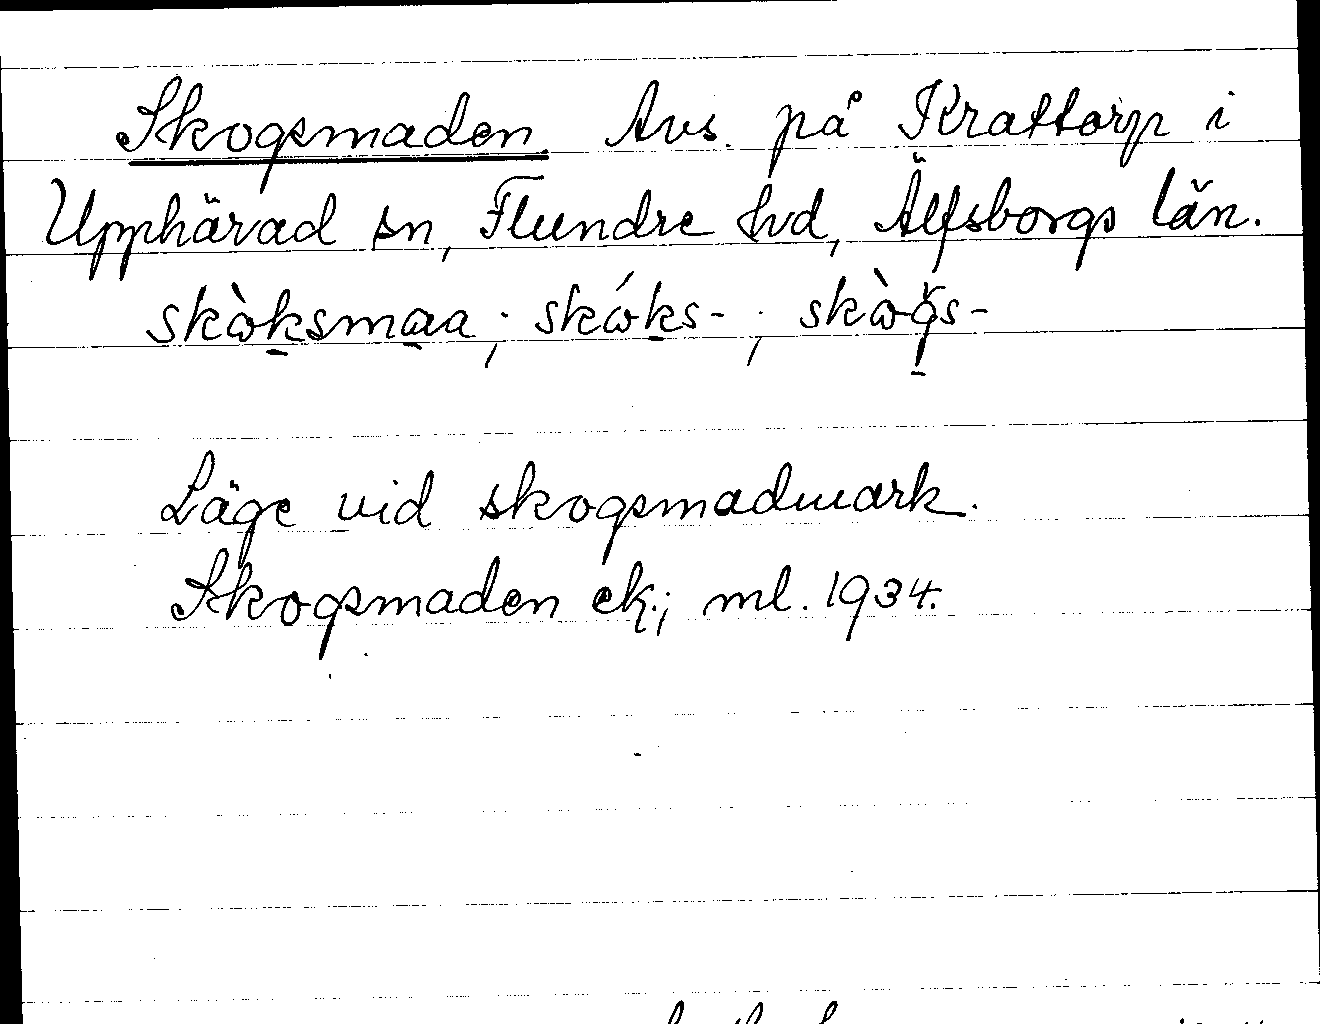 Skogsmaden. Avs. på Krattorp i
Upphärad sn, Flundre hd, Älfsborgs län.
skὼksmaa; skώks-; skὼğs-
Läge vid skogsmadmark.
Skogsmaden ek.; ml. 1934.